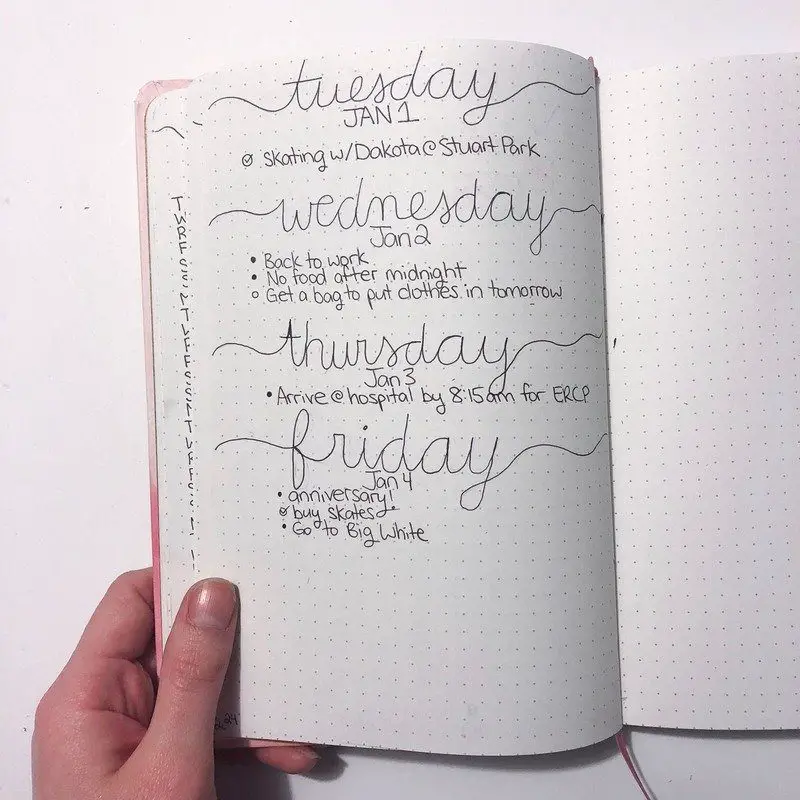 tuesday
JAN 1
skating w/Dakota @ Stuart Park
wednesday
Jan 2
• Back to work
• No food after midnight
○ Get a bag to put clothes in tomorrow
thursday
Jan 3
• Arrive @ hospital by 8:15am for ERCP
friday
Jan 4
• anniversary!
buy skates
• Go to Big White